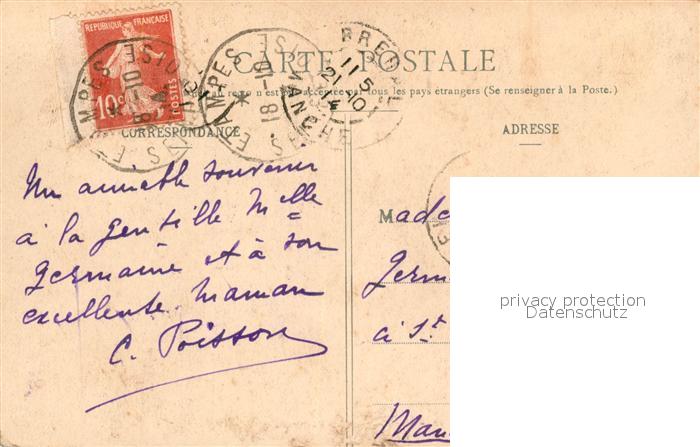 REPUBLIQUE FRANÇAISE
10c POSTES
ETAMPES
SEINE-ET-OISE
ETAMPES
18
MANCHE
21-10
14
CARTE POSTALE
n'est acceptée par tous les pays étrangers (Se renseigner à la Poste.)
CORRESPONDANCE
ADRESSE
Un aimable souvenir
à la gentille Melle
Germaine et à son
excellente maman
C. Poisson
Made
Germ
à St
Man
privacy protection
Datenschutz